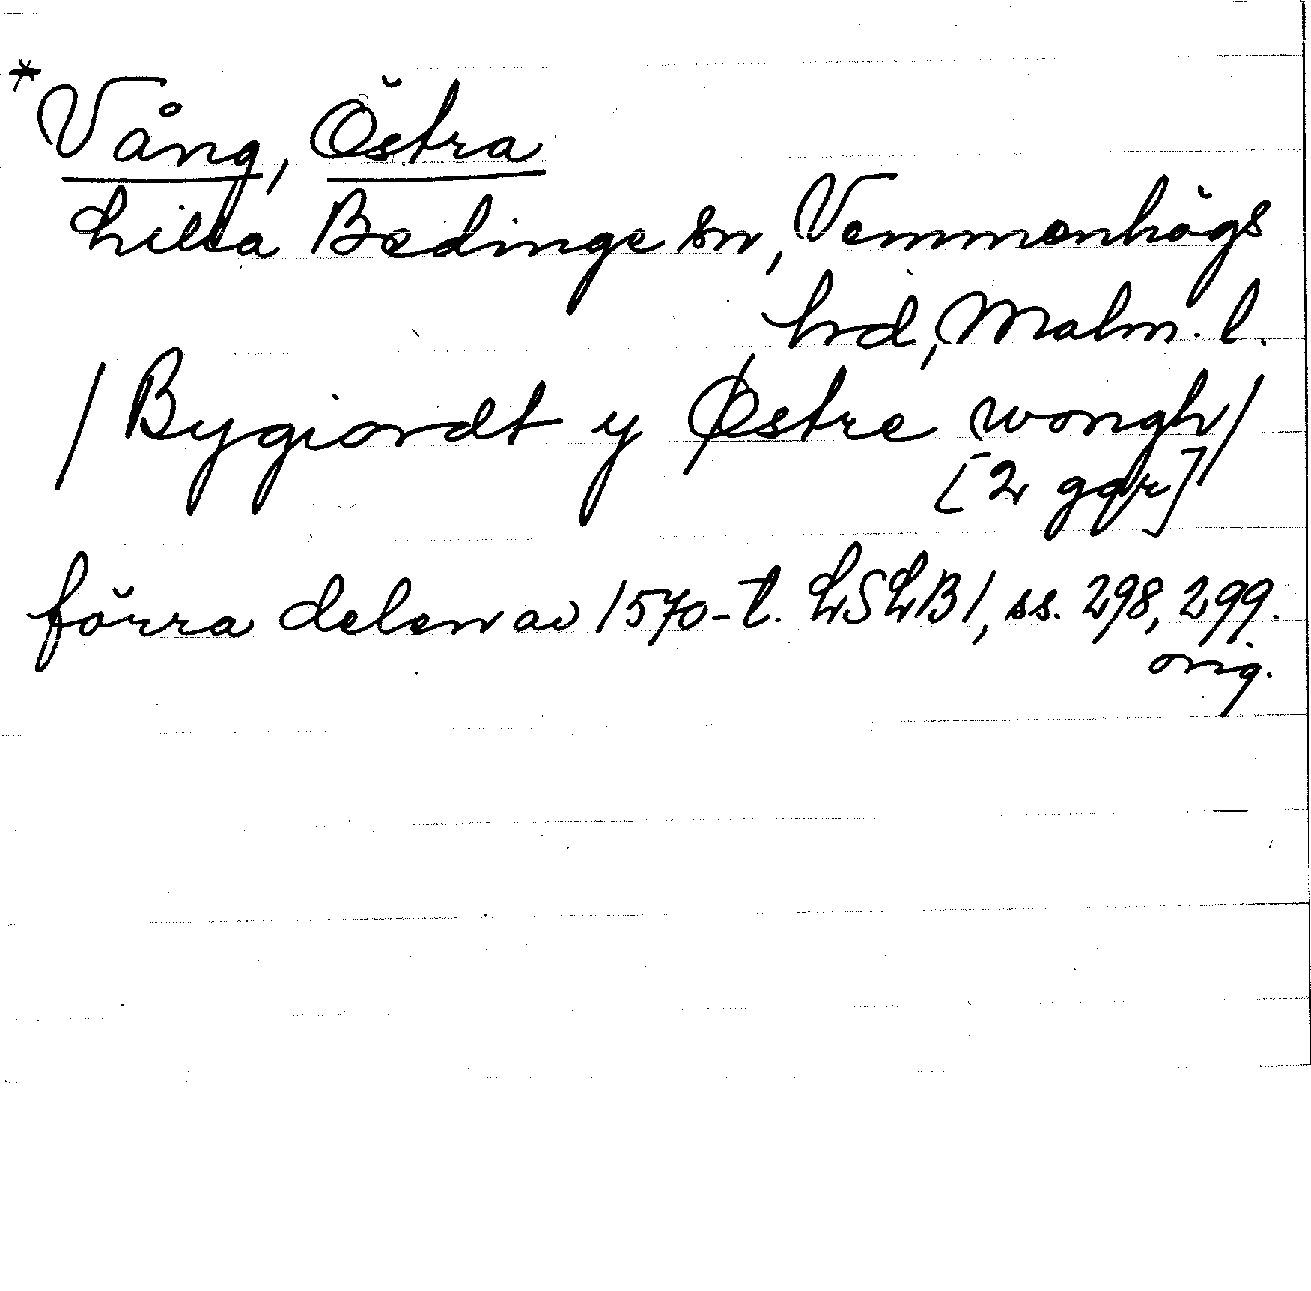 *Vång, Östra
Lilla Bedinge sn, Vemmenhögs
hrd, Malm. l.
/Bygiordt y Østre wongh/
[2 ggr]
förra delen av 1570-t. LSLB1, ss. 298, 299.
orig.